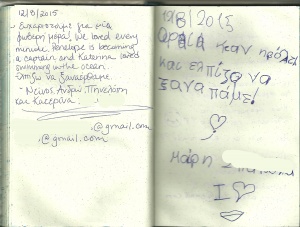 12/8/2015
- Ευχαριστουμε για μια
φοβερη μερα! We loved every
minute. Penelope is becoming
a captain and Katerina loved
swimming in the ocean.
Ελπιζω να ξαναερθουμε.
- Ντινος, Αντρω, Πηνελοπη
και Κατερίνα.
@gmail.com
@gmail.com
19/8/2015
Ωραία ήταν
και ελπίζω να
ξανα πάμε!
Μάρη
I